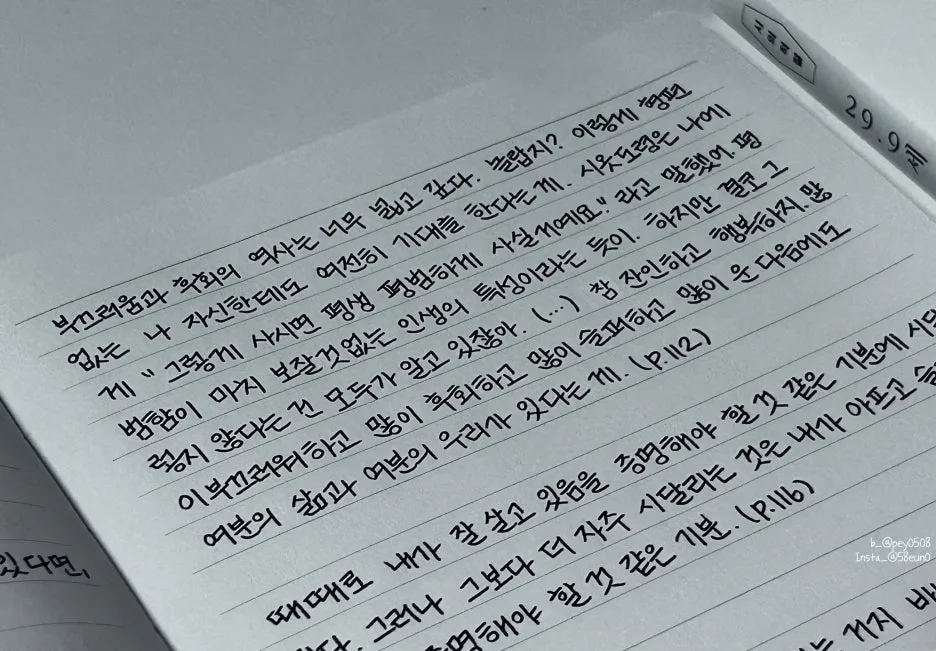 29.9제
부끄러움과 후회의 역사는 너무 넓고 깊다. 놀랍지? 이렇게 형편
없는 나 자신한테도 여전히 기대를 한다는게. 시옷도령은 나에
게 "그렇게 사시면 평생 평범하게 사실게예요." 라고 말했어. 평
범함이 마치 보잘것없는 인생의 특성이라는 듯이. 하지만 결코 그
렇지 않다는 건 모두가 알고 있잖아. (...) 참 잔인하고 행복하지. 많
이 부끄러워하고 많이 후회하고 많이 슬퍼하고 많이 운 다음에도
여분의 삶과 여분의 우리가 있다는 게. (p.112)
때때로 내가 잘 살고 있음을 증명해야 할 것 같은 기분에 시달
다. 그러나 그보다 더 자주 시달리는 것은 내가 아프고 슬
명해야 할 것 같은 기분. (p.116)
는 거지 배
있다면,
b_@pey0508
Insta_@58eun0